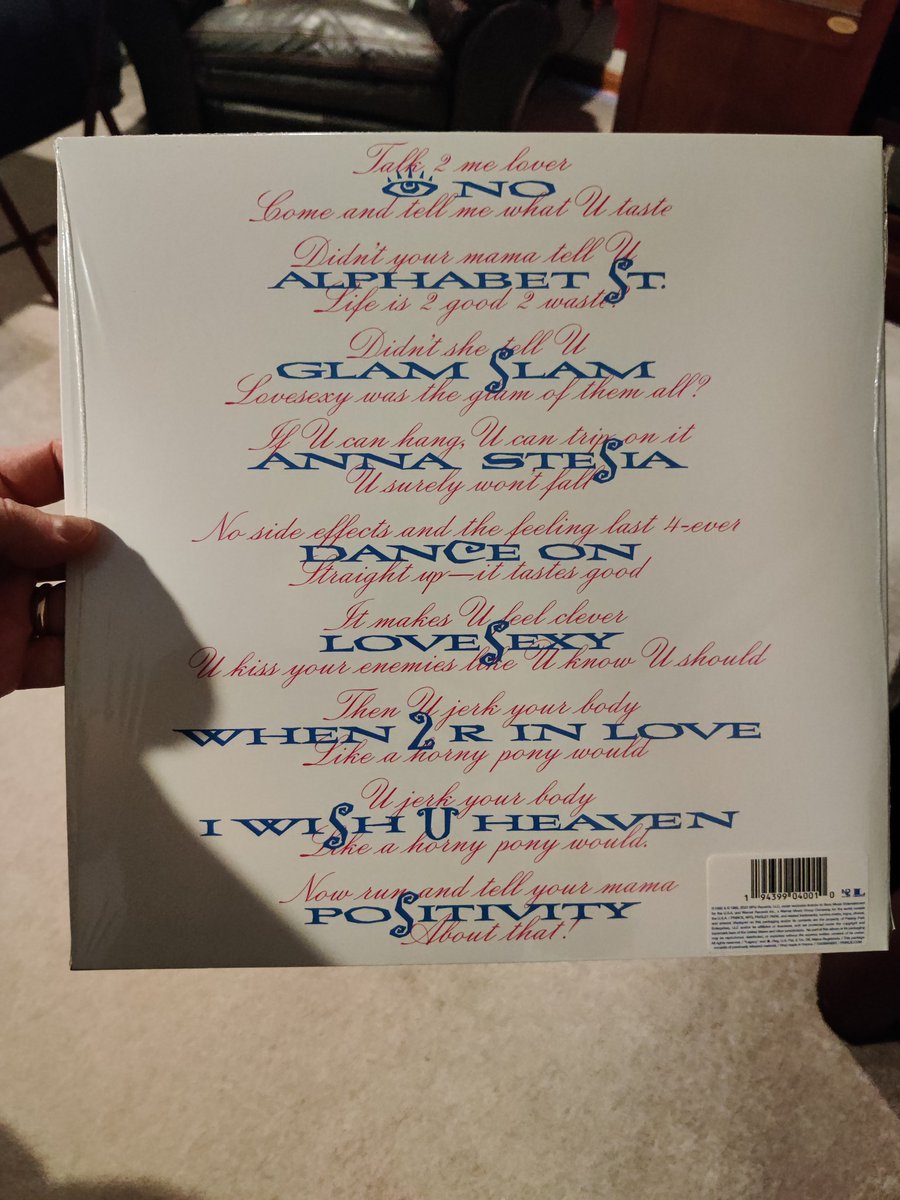 Talk 2 me lover
NO
Come and tell me what U taste
Didn't your mama tell U
ALPHABET ST.
Life is 2 good 2 waste?
Didn't she tell U
GLAM SLAM
Lovesexy was the glam of them all?
If U can hang, U can trip on it
ANNA STESIA
U surely won't fall
No side effects and the feeling last 4-ever
DANCE ON
Straight up—it tastes good
It makes U feel clever
LOVESEXY
U kiss your enemies like U know U should
Then U jerk your body
WHEN 2 R IN LOVE
Like a horny pony would
U jerk your body
I WISH U HEAVEN
Like a horny pony would.
Now run and tell your mama
POSITIVITY
About that!
1 94399 04001 0